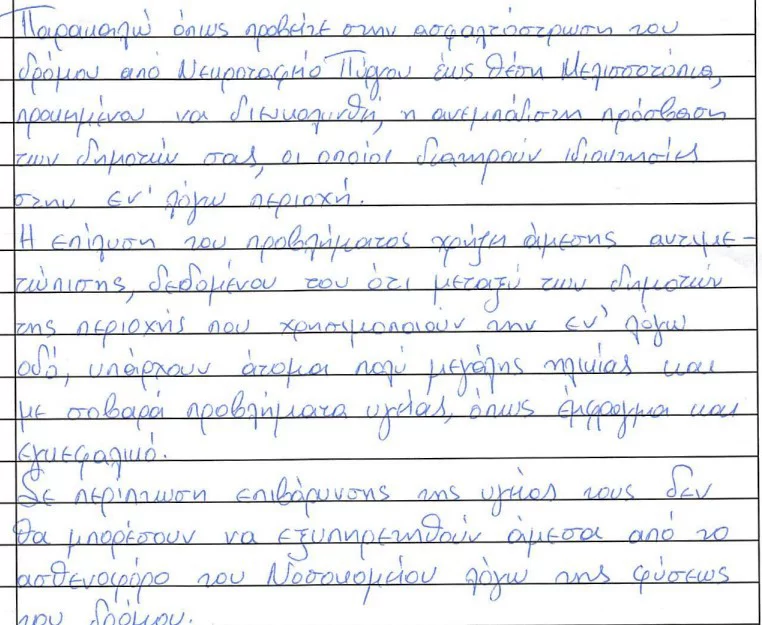 Παρακαλώ όπως προβείτε στην ασφαλτόστρωση του
δρόμου από Νεκροταφείο Πύργου έως θέση Μελισσοτόπια,
προκειμένου να διευκολυνθή, η ανεμπόδιστη πρόσβαση
των δημοτών σας, οι οποίοι διατηρούν ιδιοκτησίες
στην εν' λόγω περιοχή.
Η επίλυση του προβλήματος χρήζει άμεσης αντιμε-
τώπισης, δεδομένου του ότι μεταξύ των δημοτών
της περιοχής που χρησιμοποιούν την εν' λόγω
οδό, υπάρχουν άτομα πολύ μεγάλης ηλικίας και
με σοβαρά προβλήματα υγείας, όπως έμφραγμα και
εγκεφαλικό.
Σε περίπτωση επιβάρυνσης της υγείας τους δεν
θα μπορέσουν να εξυπηρετηθούν άμεσα από το
ασθενοφόρο του Νοσοκομείου λόγω της φύσεως
του δρόμου.